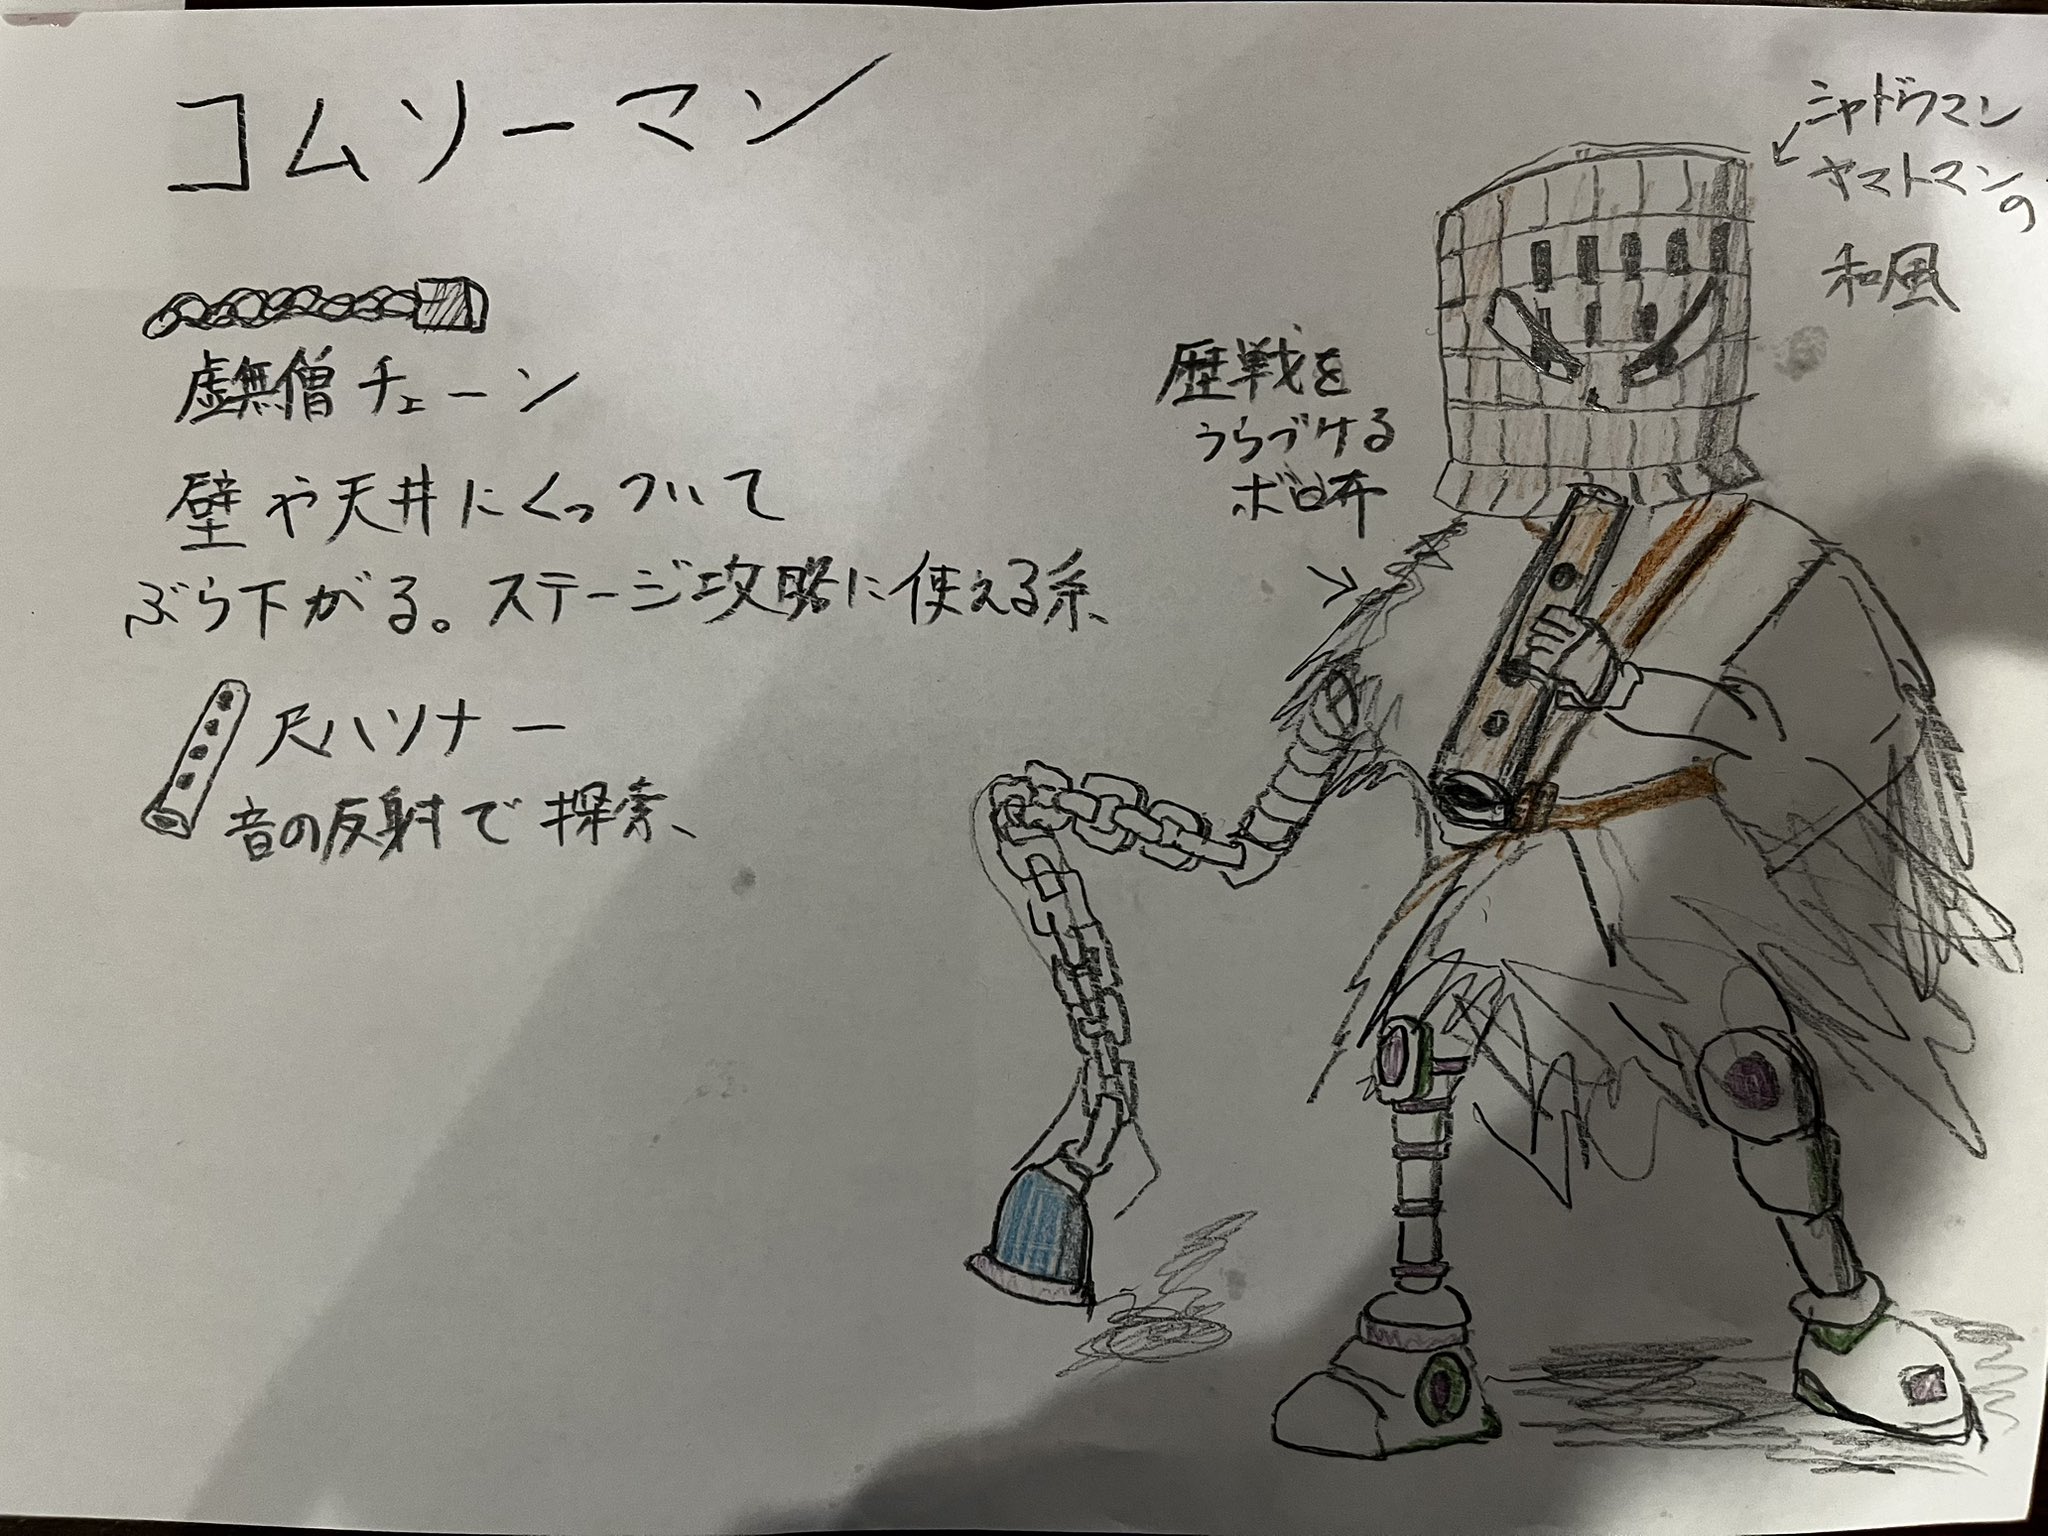 コムソーマン
虚無僧チェーン
壁や天井にくっついて
ぶら下がる。ステージ攻略に使える系、
尺ハソナー
音の反射で探索、
歴戦を
うらづける
ボロ布
シャドウマン
ヤマトマンの
和風